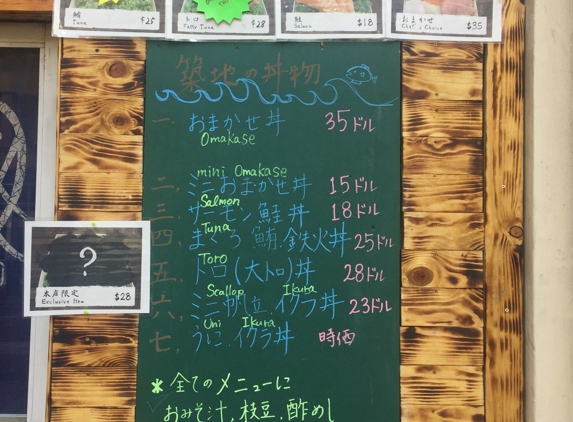 鮪 Tuna $25
トロ Fatty Tuna $28
鮭 Salmon $18
おまかせ Chef's Choice $35
築地の丼物
一. おまかせ丼 35ドル
Omakase
mini Omakase
二. ミニおまかせ丼 15ドル
Salmon
三. サーモン鮭丼 18ドル
Tuna
四. まぐろ 鮪 鉄火丼 25ドル
Toro
五. トロ(大トロ)丼 28ドル
Scallop Ikura
六. ミニ帆立 イクラ丼 23ドル
Uni Ikura
七. うに イクラ丼 時価
?
本店限定
Exclusive Item $28
* 全てのメニューに
おみそ汁, 枝豆, 酢めし